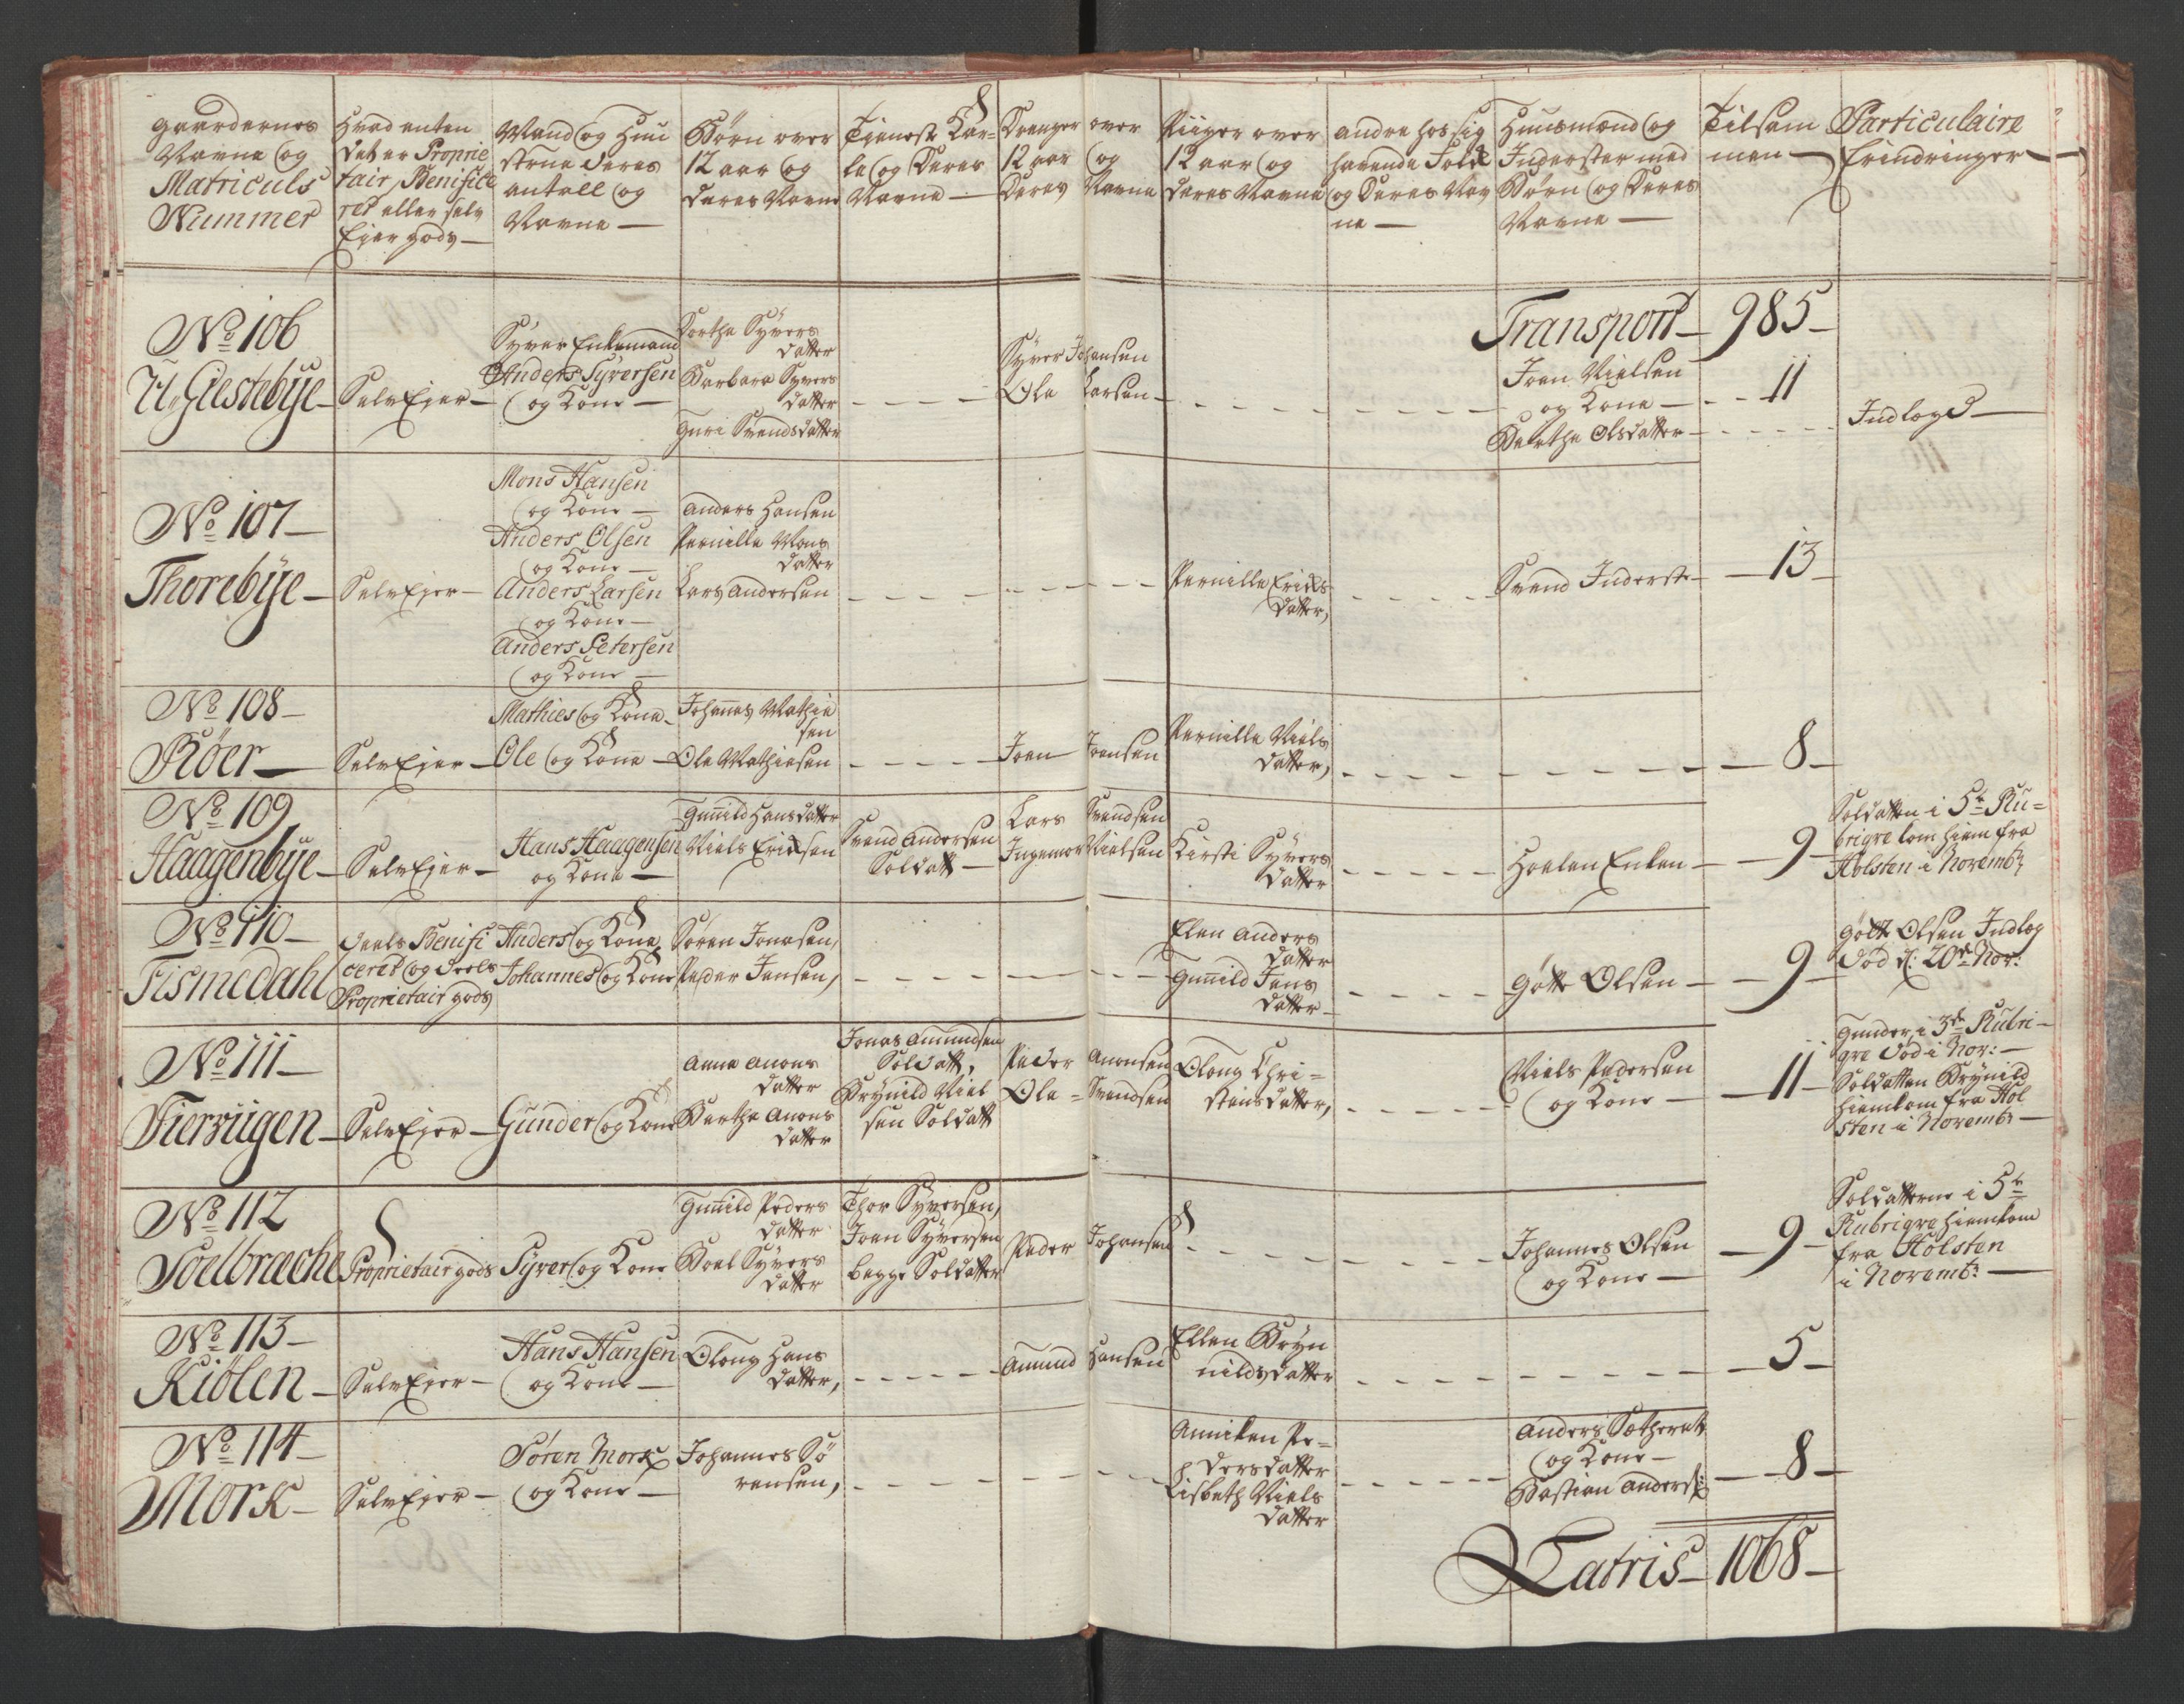 Gaardernes
Navne og
Matriculs
Nummer
Hvad enten
det er Proprie
tair, Benifice
ret eller selv
Ejer gods —
Mand og Huu
strue deres
antall og
Navne —
Børn over
12 aar og
deres Navne
Tieneste Kar=
le og deres
Navne —
Drenger over
12 aar og
deres Navne
Piiger over
12 aar og
deres Navne
andre hos sig
havende Folk
og deres Nav
ne —
Huusmænd og
Inderster med
Børn og deres
Navne —
Tilsam
men —
Particulaire
Erindringer —
Transport — 985 —
No 106
N. Giestebÿe —
SelvEjer —
Syver Enkemand
Anders Syversen
og Kone —
Dorthe Syvers
datter
Barbara Syvers
datter
Guri Svendsdatter
Syver Johansen
Ole Larsen —
Joen Nielsen
og Kone —
Berthe Olsdatter —
11
Indlagd —
No 107 —
Thorebÿe —
SelvEjer —
Mons Hansen
og Kone —
Anders Olsen
og Kone —
Anders Larsen
og Kone —
Anders Petersen
og Kone —
Anders Hansen
Pernille Mons
datter
Lars Andersen
Pernille Erichs
datter,
Svend Inderste —
13 —
No 108 —
Röer —
SelvEjer —
Mathies og Kone —
Ole og Kone —
Johannes Mathie
sen
Ole Mathiesen
Joen Joensen
Pernille Niels
datter,
8 —
No 109
Haagenbÿe —
SelvEjer —
Hans Haagensen
og Kone —
Gunild Hansdatter
Niels Ericksen
Svend Andersen
Soldatt —
Lars Svendsen
Ingemor Nielsen
Kirsti Syvers
datter
Hoelen Enken —
9 —
Soldatten i 5te Ru=
brique kom hiem fra
Holsten i Novembr
No 110 —
Fismedahl
deels Benifi
ceret og deels
Proprietair gods
Anders og Kone
Johannes og Kone
Søren Jonasen,
Peder Jensen,
Elen Anders
datter
Gunild Jens
datter —
Gotte Olsen —
9 —
Gotte Olsen Indlag
død d: 20de Nov:
No 111 —
Tiervügen —
SelvEjer —
Günder og Kone
Anne Anons
datter
Berthe Anons
datter
Jonas Amundsen
Soldatt,
Brÿnild Niel
sen Soldatt
Peder Anonsen
Ole = Svendsen
Oloug Chri=
stensdatter,
Niels Pedersen
og Kone —
11 —
Gunder i 3de Rubri=
que død i Nov: —
Soldatten Brÿnild
hiemkom fra Hol
sten i Novembr —
No 112
Soelbræche
Proprietair gods
Syver og Kone
Gunild Peders
datter
Boel Syvers
datter
Thor Syversen,
Joen Syversen
begge Soldatter
Peder Johansen
Johannes Olsen
og Kone —
9 —
Soldatterne i 5te
Rubrique hiemkom
fra Holsten
i Novembr: —
No 113 —
Kiölen —
SelvEjer —
Hans Hansen
og Kone —
Oloug Hans
datter,
Amund Hansen
Ellen Brÿn
nildsdatter
5 —
No 114 —
Mork —
SelvEjer —
Sören Mork
og Kone —
Johannes Sö
rensen,
Anniken Pe=
dersdatter
Lisbeth Niels
datter
Anders Sætheret
og Kone —
Bastian Anders:
8 —
Latris — 1068 —